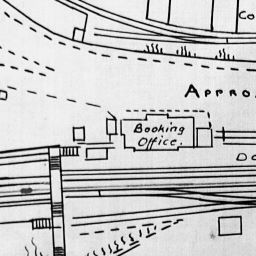 Co
Appro
Booking
Office.
Do